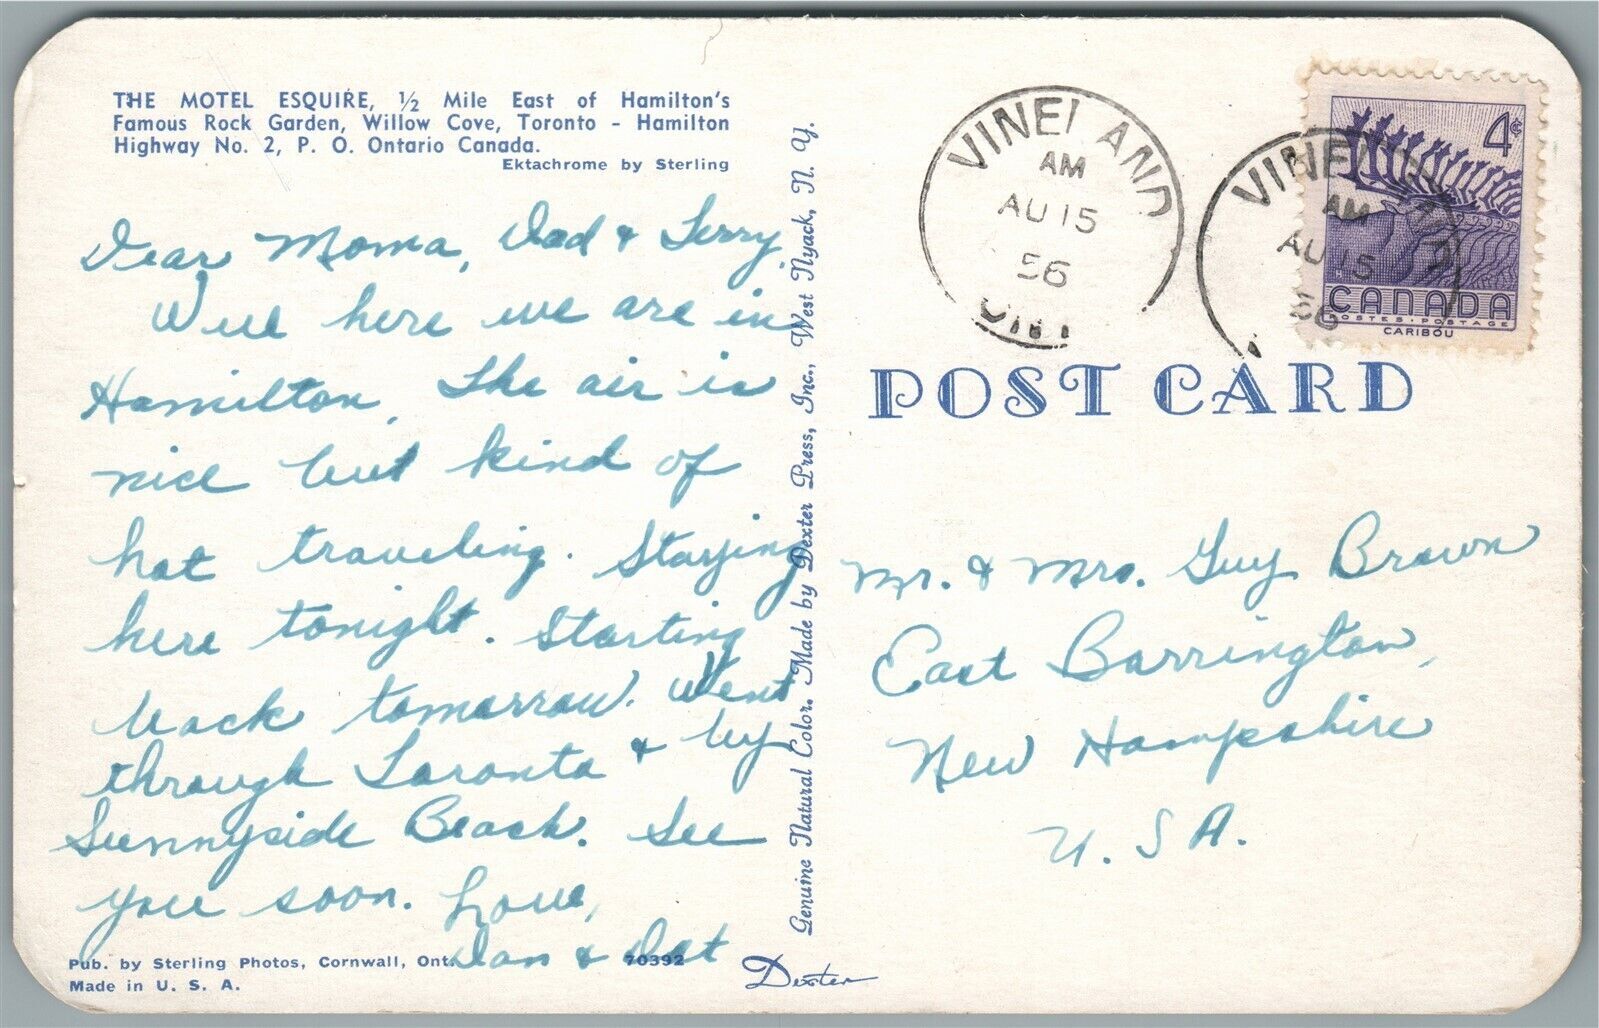 THE MOTEL ESQUIRE, ½ Mile East of Hamilton's
Famous Rock Garden, Willow Cove, Toronto - Hamilton
Highway No. 2, P. O. Ontario Canada.
Ektachrome by Sterling
Dear Moma, Dad & Terry,
Well here we are in
Hamilton. The air is
nice but kind of
hot traveling. Staying
here tonight. Starting
back tomorrow. Went
through Toronto & by
Sunnyside Beach. See
you soon. Love,
Dan & Dot
Pub. by Sterling Photos, Cornwall, Ont.
70392
Made in U. S. A.
Genuine Natural Color. Made by Dexter Press, Inc., West Nyack, N. Y.
Dexter
VINELAND
AM
AU 15
56
ONT
VINEL
AM
AU 15
56
4¢
CANADA
POSTES - POSTAGE
CARIBOU
POST CARD
Mr. & Mrs. Guy Brown
East Barrington,
New Hampshire
U. S A.